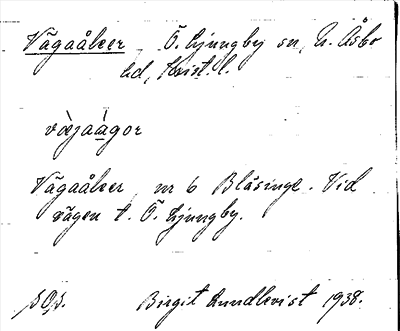 Vägaåker Ö. Ljungby sn, N. Åsbo
hd, Krist. l.
vàjaàgor
Vägaåker nr 6 Blåsinge. Vid
vägen t. Ö. Ljungby.
Birgit Lundkvist 1938.